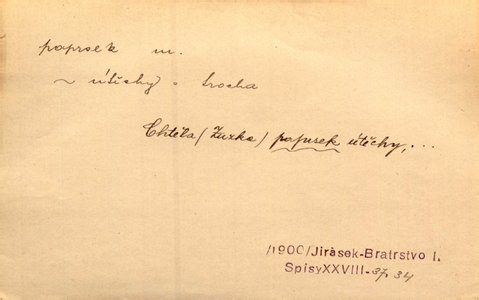 paprsek m.
~ útěchy = trocha
Chtěla (Zuzka) paprsek útěchy, ...
/1900/Jirásek-Bratrstvo I.
Spisy XXVIII-37, 34